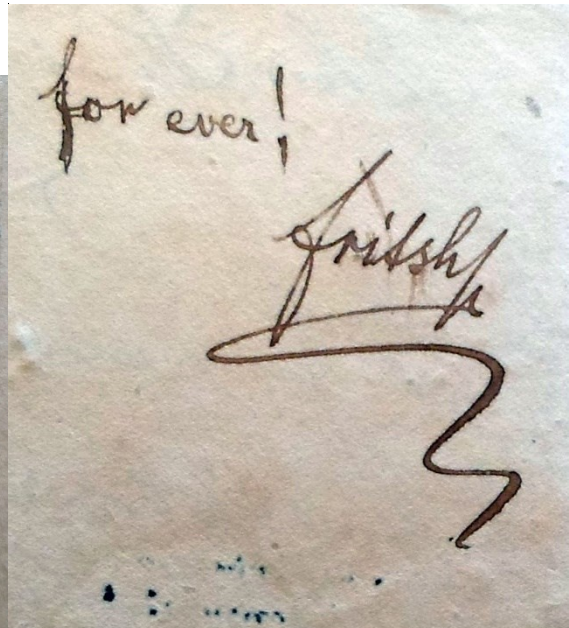 for ever!
fritsh